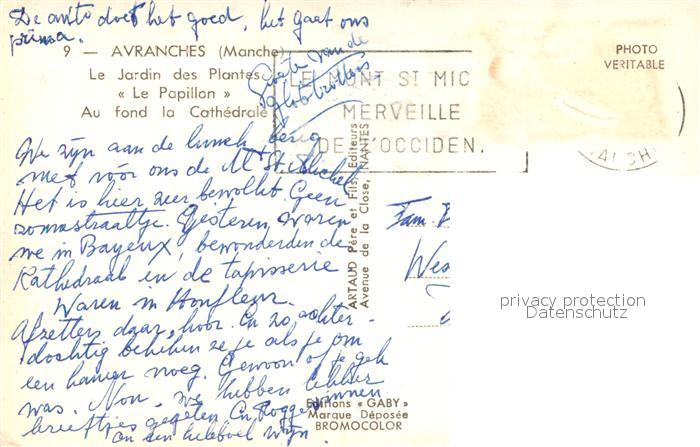 De auto doet het goed, het gaat ons
prima.
9 — AVRANCHES (Manche)
Le Jardin des Plantes
« Le Papillon »
Au fond la Cathédrale
Groeten van de
globetrotters
LE MONT ST MIC
MERVEILLE
DE L'OCCIDEN.
PHOTO
VERITABLE
MANCHE
We zijn aan de lunch bezig
met vóór ons de Mt St. Michel
Het is hier zeer bewolkt. Geen
zonnestraaltje. Gisteren waren
we in Bayeux, bewonderden de
Kathedraal en de tapisserie
Waren in Honfleur.
Afzetters daar, hoor. En zo achter-
dochtig bekeken ze je als je om
een hamer vroeg. Gewoon of je gek
was. Nou, we hebben lekker
kreeftjes gegeten
en een heleboel wijn.
ARTAUD Père et Fils, Editeurs
Avenue de la Close, NANTES
Fam.
Wes
Editions « GABY »
Marque Déposée
BROMOCOLOR
privacy protection
Datenschutz